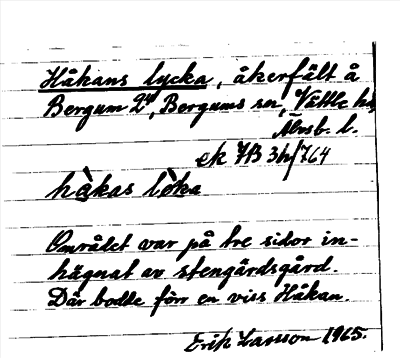 Håkans lycka, åkerfält å
Bergum 2⁴, Bergums sn, Vättle hd
Älvsb. l.
ek 7B 3h/764
hàkas lòka
Området var på tre sidor in-
hägnat av stengärdsgård.
Där bodde förr en viss Håkan.
Erik Larsson 1965.